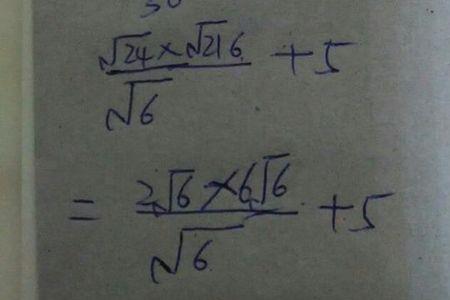 √24 × √216 / √6 + 5
= 2√6 × 6√6 / √6 + 5